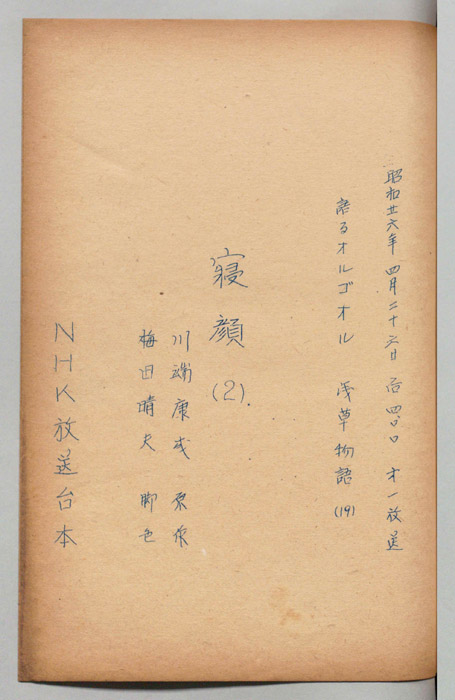 昭和廿六年四月二十六日 后四、〇〇 才一放送
語るオルゴオル 浅草物語(19)
寝顔(2)
川端康成 原作
梅田晴夫 脚色
NHK放送台本